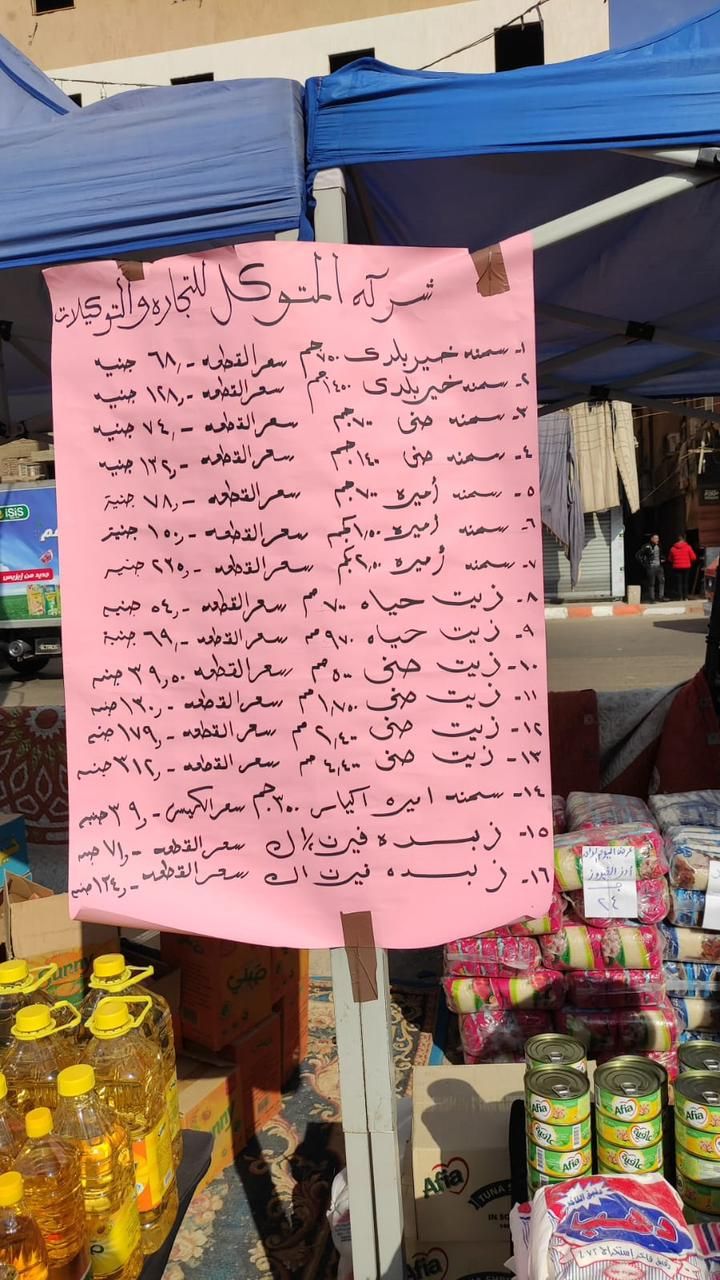 شركه المتوكل للتجاره والتوكيلات
١- سمنه خير بلدى ٧٥٠جم سعر القطعه -,٦٨ جنيه
٢- سمنه خير بلدى ١٤٥٠جم سعر القطعه -,١٢٨ جنيه
٣- سمنه صنى ٧٠٠جم سعر القطعه -,٧٤ جنيه
٤- سمنه صنى ١٤٠٠جم سعر القطعه -,١٣٢ جنيه
٥- سمنه أميره ٧٠٠جم سعر القطعه -,٧٨ جنية
٦- سمنه أميره ١,٥٠٠كجم سعر القطعه -,١٥٠ جنية
٧- سمنه أميره ٢,٥٠٠كجم سعر القطعه -,٢٢٥ جنيه
٨- زيت حياه ٧٠٠مم سعر القطعه -,٥٤ جنيه
٩- زيت حياه ٩٧٠مم سعر القطعه -,٦٩ جنية
١٠- زيت صنى ٥٠٠مم سعر القطعه ٣٩,٥٠ جنيه
١١- زيت صنى ١,٧٥٠مم سعر القطعه -,١٣٠ جنيه
١٢- زيت صنى ٢,٤٠٠مم سعر القطعه -,١٧٩ جنيه
١٣- زيت صنى ٤,٤٠٠مم سعر القطعه -,٣١٢ جنيه
١٤- سمنه اميره اكياس ٣٥٠جم سعر الكيس -,٣٩ جنيه
١٥- زبده فيرن ½ك سعر القطعه -,٧١ جنيه
١٦- زبده فيرن ١ك سعر القطعه -,١٣٤ جنيه
ISIS
جديد من إيزيس
عرض اليوم الواحد
أرز الفيروز
٢٤ ج
Afia
عافية
Afia
Afia
عافية
Afia
TUNA
Afia
دقيق فاخر
دهب
دقيق فاخر إستخراج ٧٢٪